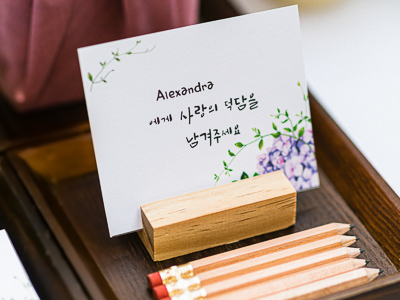 Alexandra
에게 사랑의 덕담을
남겨주세요